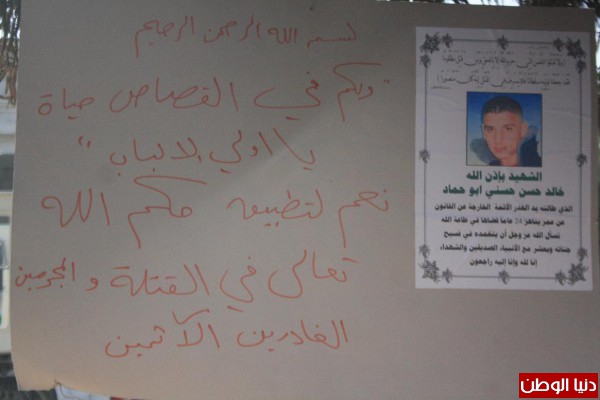 بسم الله الرحمن الرحيم
"ولكم في القصاص حياة
يا اولي الالباب"
نعم لتطبيق حكم الله
تعالى في القتلة والمجرمين
الغادرين الآثمين
الشهيد بإذن الله
خالد حسن حسني ابو حماد
الذي طالته يد الغدر الآثمة الخارجة عن القانون
عن عمر يناهز 24 عاما قضاها في طاعة الله
نسأل الله عز وجل أن يتغمده في فسيح
جناته ويحشر مع الأنبياء الصديقين والشهداء
إنا لله وإنا إليه راجعون
دنيا الوطن